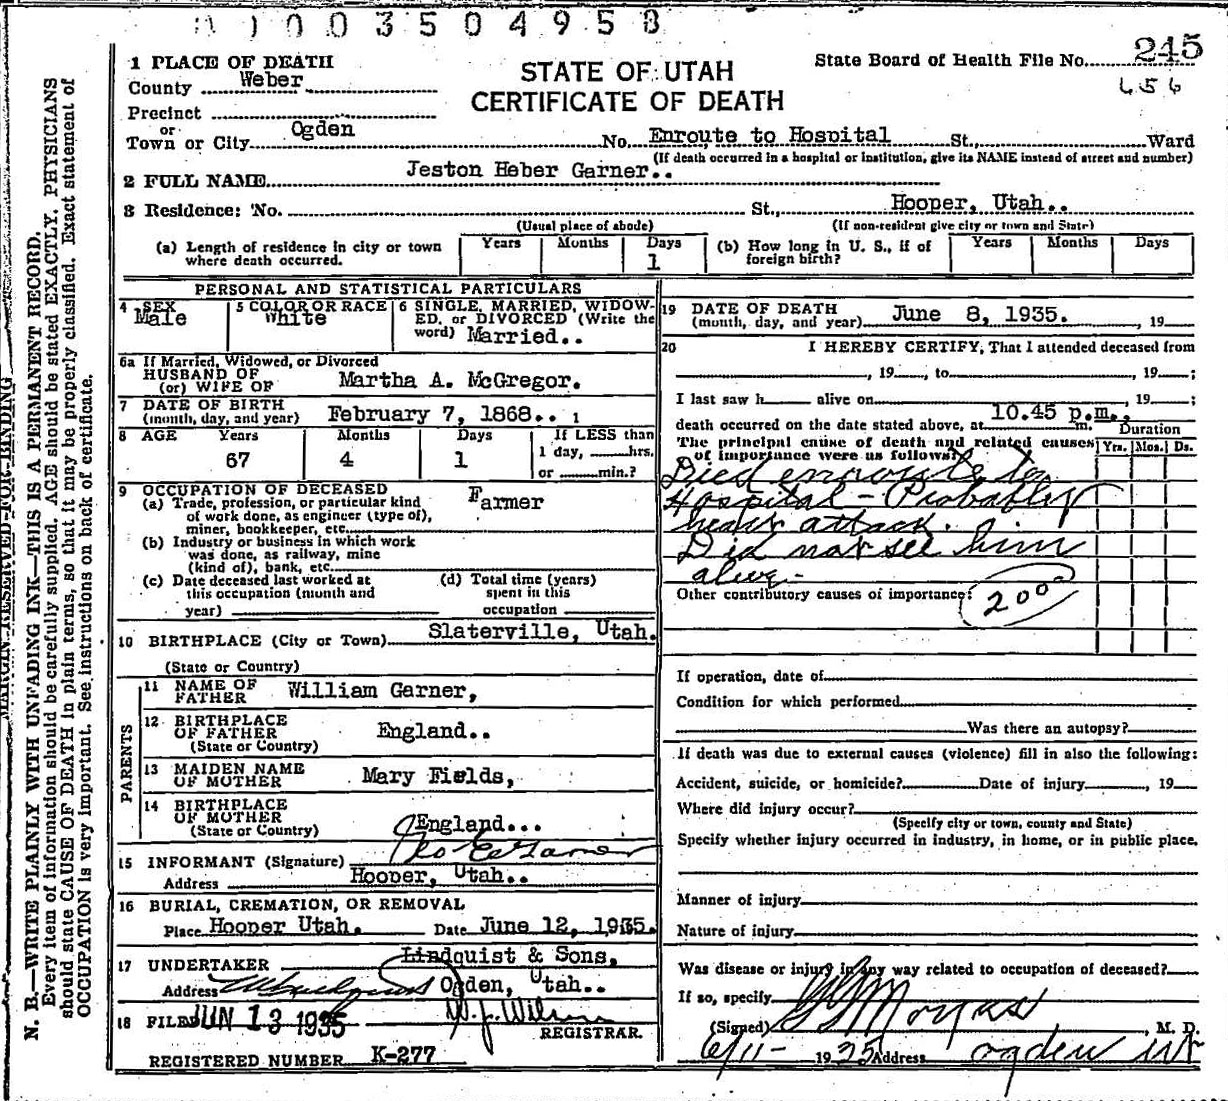 1003504958
1 PLACE OF DEATH
County Weber
Precinct
or
Town or City Ogden No. Enroute to Hospital St., Ward
(If death occurred in a hospital or institution, give its NAME instead of street and number)
STATE OF UTAH
CERTIFICATE OF DEATH
State Board of Health File No. 245
656
2 FULL NAME Jeston Heber Garner..
3 Residence: No. St., Hooper, Utah..
(Usual place of abode) (If non-resident give city or town and State)
(a) Length of residence in city or town where death occurred. Years Months Days 1
(b) How long in U. S., if of foreign birth? Years Months Days
PERSONAL AND STATISTICAL PARTICULARS
4 SEX Male
5 COLOR OR RACE White
6 SINGLE, MARRIED, WIDOW-
ED, or DIVORCED (Write the
word) Married..
6a If Married, Widowed, or Divorced
HUSBAND OF
(or) WIFE OF Martha A. McGregor.
7 DATE OF BIRTH
(month, day, and year) February 7, 1868.. 1
8 AGE Years Months Days If LESS than
67 4 1 1 day, hrs.
or min.?
9 OCCUPATION OF DECEASED Farmer
(a) Trade, profession, or particular kind
of work done, as engineer (type of),
miner, bookkeeper, etc.
(b) Industry or business in which work
was done, as railway, mine
(kind of), bank, etc.
(c) Date deceased last worked at
this occupation (month and
year)
(d) Total time (years)
spent in this
occupation
10 BIRTHPLACE (City or Town) Slaterville, Utah.
(State or Country)
PARENTS
11 NAME OF
FATHER William Garner,
12 BIRTHPLACE
OF FATHER England..
(State or Country)
13 MAIDEN NAME
OF MOTHER Mary Fields,
14 BIRTHPLACE
OF MOTHER
(State or Country) England...
15 INFORMANT (Signature) Geo E Garner
Address Hooper, Utah..
16 BURIAL, CREMATION, OR REMOVAL
Place Hooper Utah. Date June 12, 1935.
17 UNDERTAKER Lindquist & Sons,
Address Ogden, Utah..
18 FILED JUN 13 1935 W. J. Wilson
REGISTRAR.
REGISTERED NUMBER K-277
19 DATE OF DEATH
(month, day, and year) June 8, 1935. , 19
20 I HEREBY CERTIFY, That I attended deceased from
, 19 , to , 19 ;
I last saw h alive on , 19 ;
death occurred on the date stated above, at 10.45 p.m.. m.
The principal cause of death and related causes
of importance were as follows:
Duration
Yrs. Mos. Ds.
Died enroute to
Hospital - Probably
heart attack.
Did not see him
alive -
Other contributory causes of importance:
200
If operation, date of
Condition for which performed
Was there an autopsy?
If death was due to external causes (violence) fill in also the following:
Accident, suicide, or homicide? Date of injury , 19
Where did injury occur?
(Specify city or town, county and State)
Specify whether injury occurred in industry, in home, or in public place.
Manner of injury
Nature of injury
Was disease or injury in any way related to occupation of deceased?
If so, specify
(Signed) Morgan , M. D.
6/11- 1935 Address Ogden Ut
MARGIN RESERVED FOR BINDING
N. B.—WRITE PLAINLY WITH UNFADING INK—THIS IS A PERMANENT RECORD.
Every item of information should be carefully supplied. AGE should be stated EXACTLY. PHYSICIANS
should state CAUSE OF DEATH in plain terms, so that it may be properly classified. Exact statement of
OCCUPATION is very important. See instructions on back of certificate.